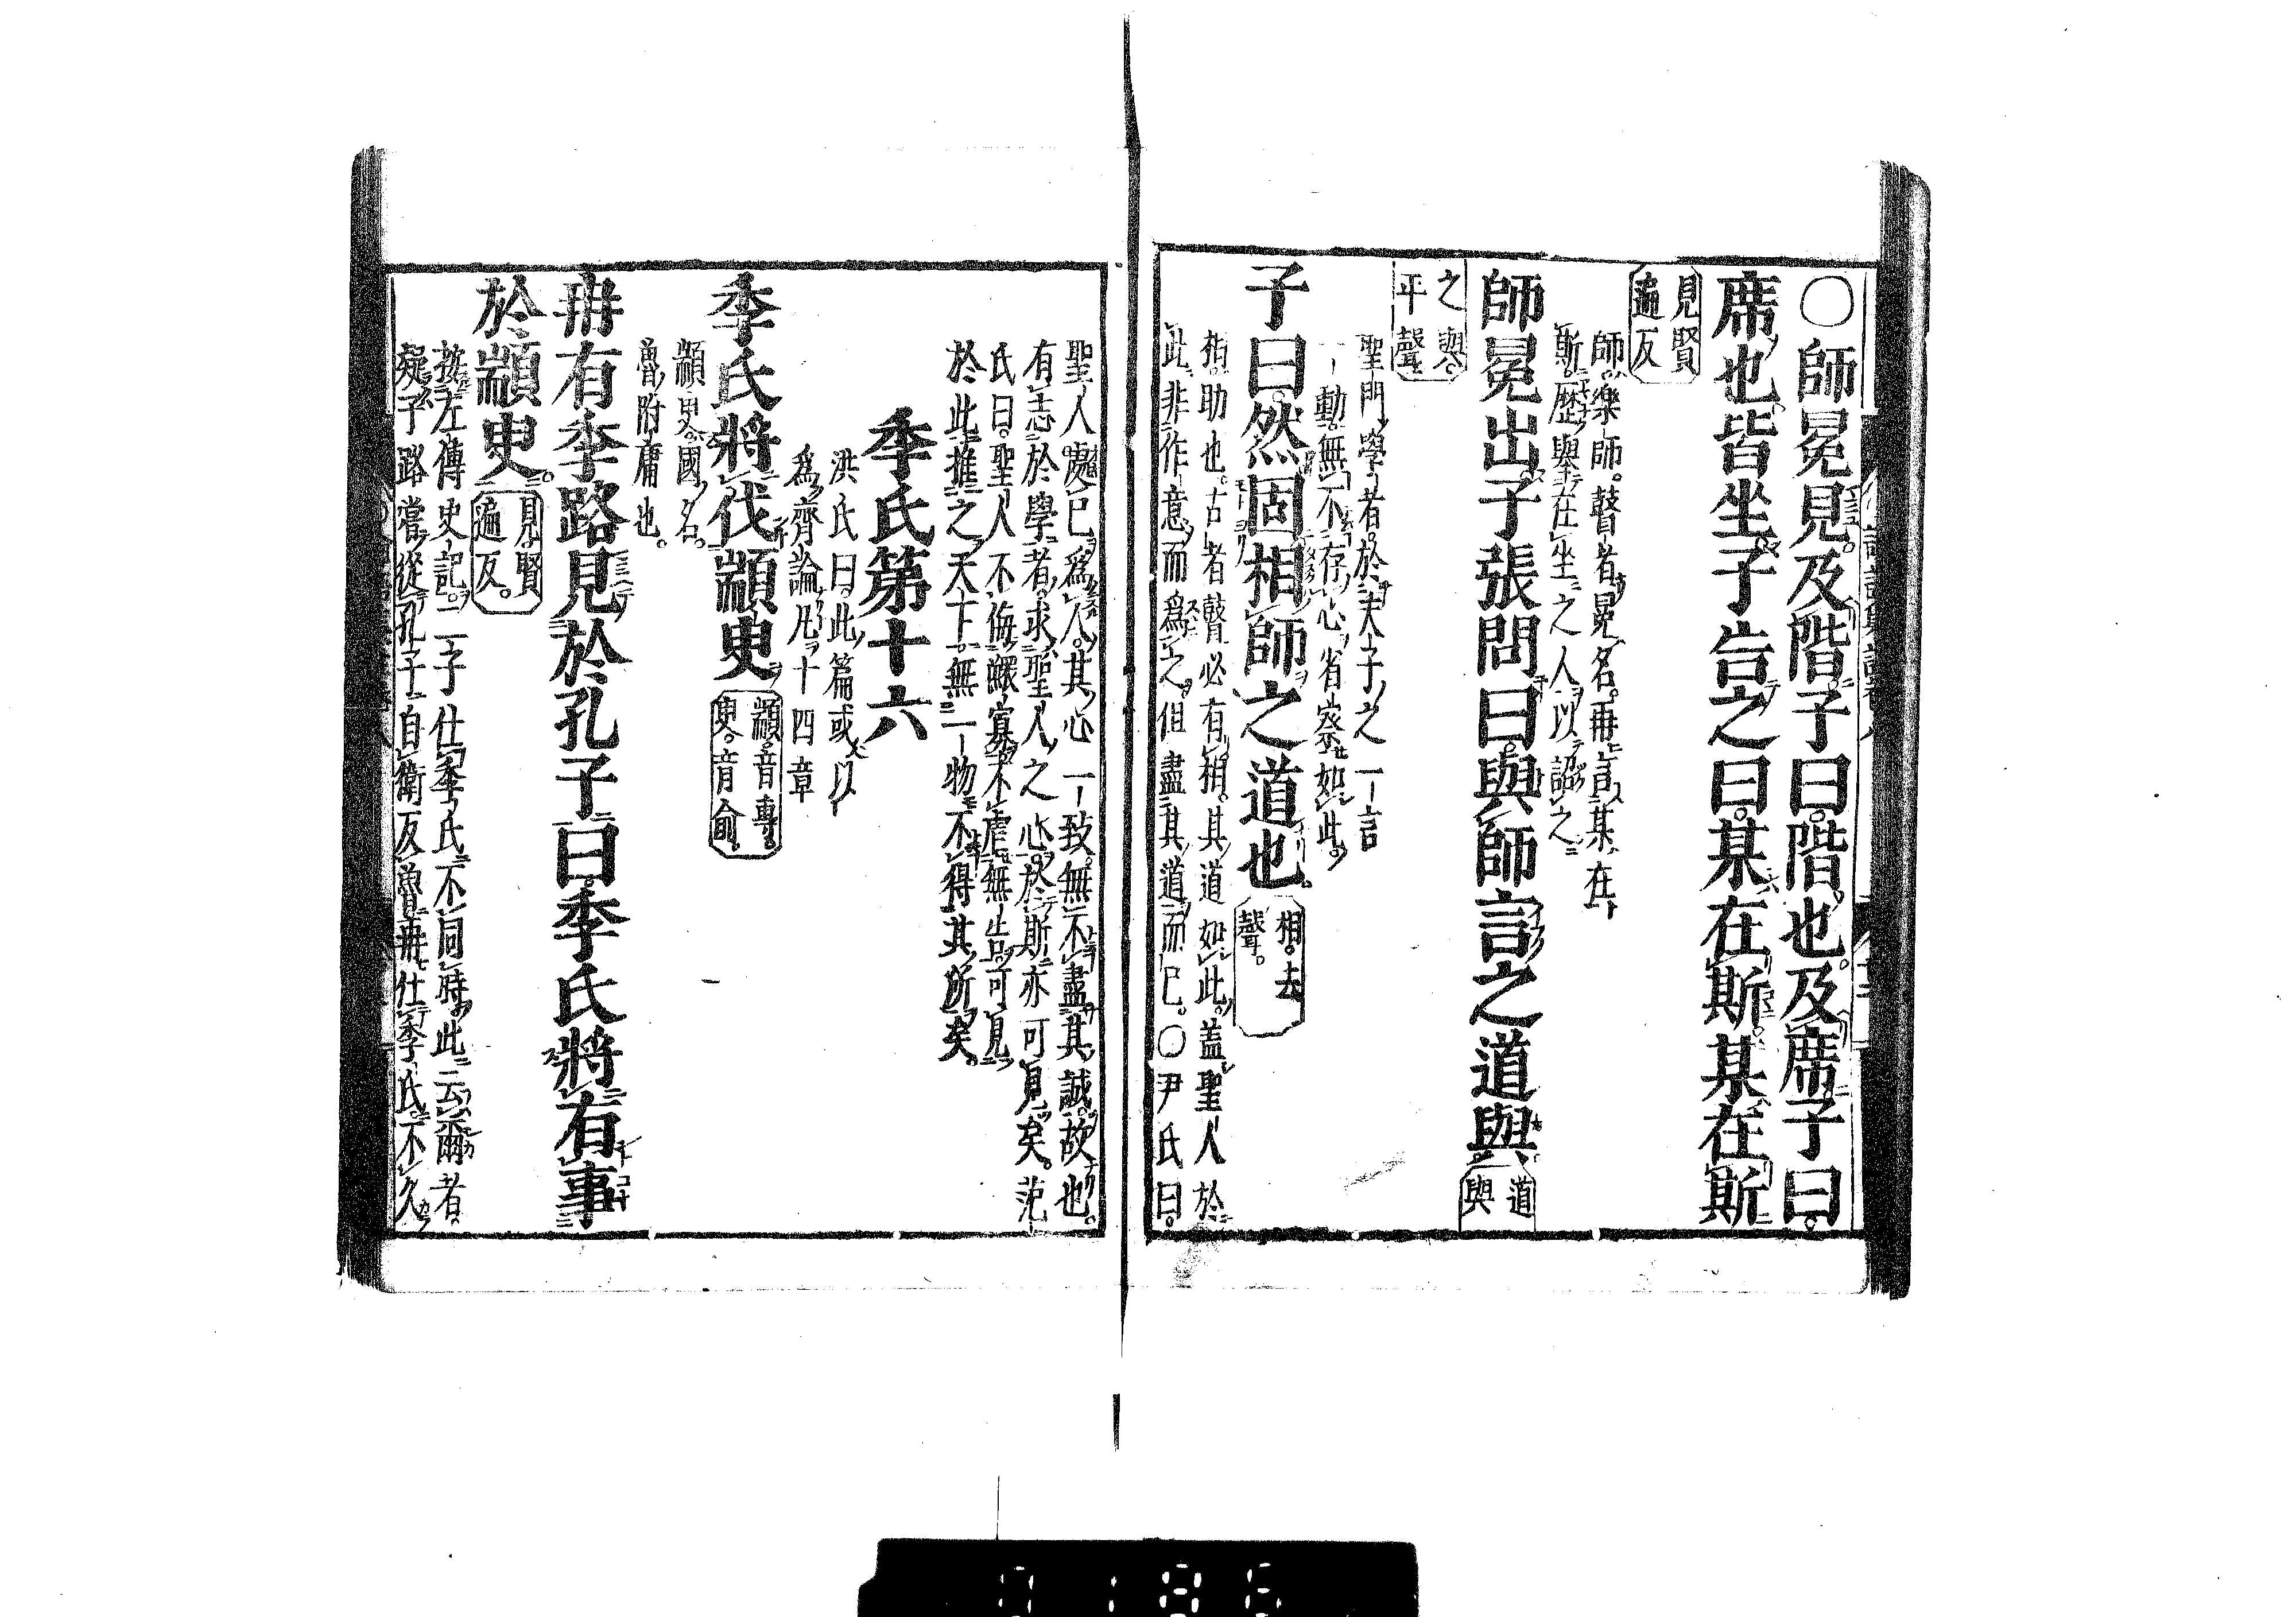 〇師冕見及階子曰。階也。及席子曰。
席也皆坐子告之曰。某在斯某在斯
見賢
遍反
師樂師。瞽者冕名。再言某在
斯。歷擧在坐之人以詔之
師冕出子張問曰。與師言之道與。
道
與
之與。
平聲
聖門學者。於夫子之一言
一動。無不存心省察如此。
子曰。然固相師之道也。
相。去
聲。
相。助也。古者瞽必有相。其道如此。蓋聖人於
此。非作意而爲之。但盡其道而已。〇尹氏曰。
聖人處己爲人。其心一致。無不盡其誠故也。
有志於學者。求聖人之心。於斯亦可見矣。范
氏曰。聖人不侮鰥寡不虐無告。可見
於此推之天下。無一物不得其所矣。
季氏第十六
洪氏曰。此篇或以
爲齊論凡十四章
季氏將伐顓臾
顓。音專。
臾。音俞。
顓臾。國名。
魯附庸也。
冉有季路見於孔子曰。季氏將有事
於顓臾。
見。賢
遍反。
按左傳史記。二子仕季氏不同時。此云爾者。
疑子路嘗從孔子自衛反魯再仕季氏。不久